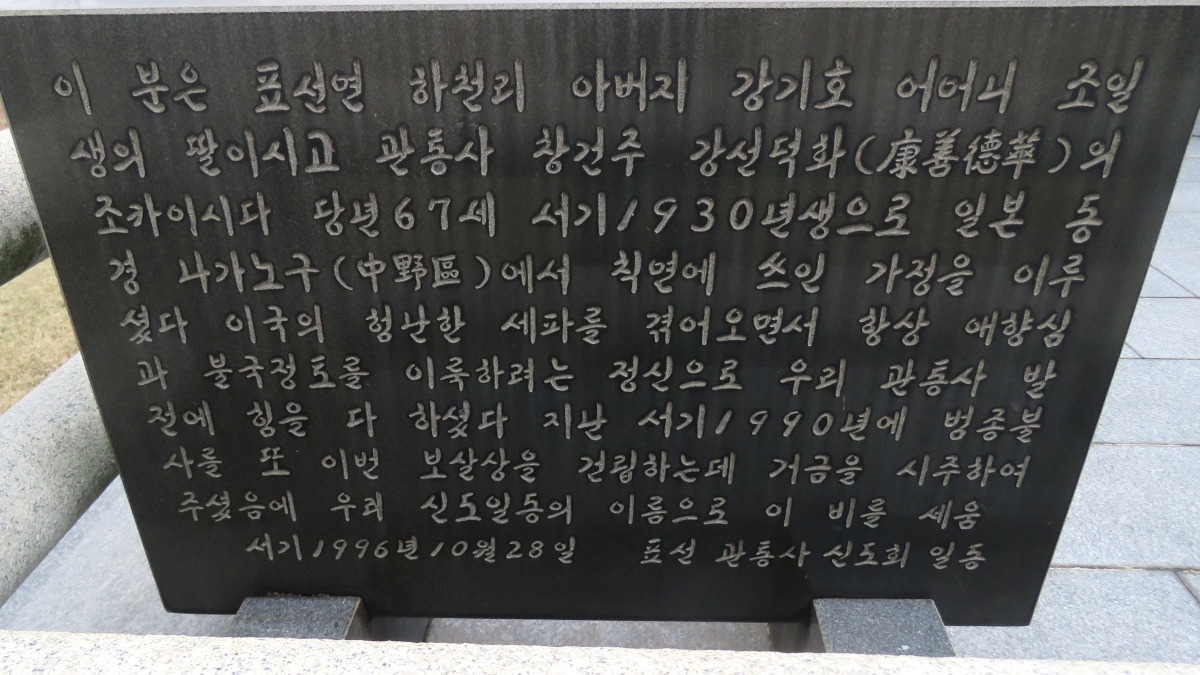 이 분은 표선면 하천리 아버지 강기호 어머니 조일
생의 딸이시고 관통사 창건주 강선덕화(康善德華)의
조카이시다 당년67세 서기1930년생으로 일본 동
경 나가노구(中野區)에서 칙연에 쓰인 가정을 이루
셨다 이국의 험난한 세파를 겪어오면서 항상 애향심
과 불국정토를 이룩하려는 정신으로 우리 관통사 발
전에 힘을 다 하셨다 지난 서기1990년에 범종불
사를 또 이번 보살상을 건립하는데 거금을 시주하여
주셨음에 우리 신도일동의 이름으로 이 비를 세움
서기1996년10월28일 표선 관통사신도회 일동